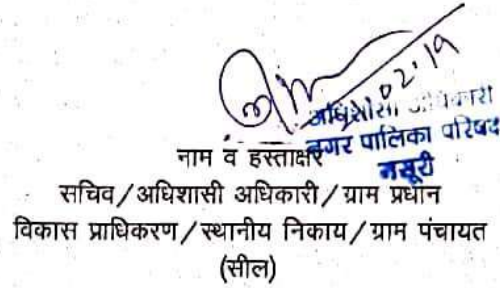 02.19
अधिशासी अधिकारी
नगर पालिका परिषद
मसूरी
नाम व हस्ताक्षर
सचिव/अधिशासी अधिकारी/ग्राम प्रधान
विकास प्राधिकरण/स्थानीय निकाय/ग्राम पंचायत
(सील)